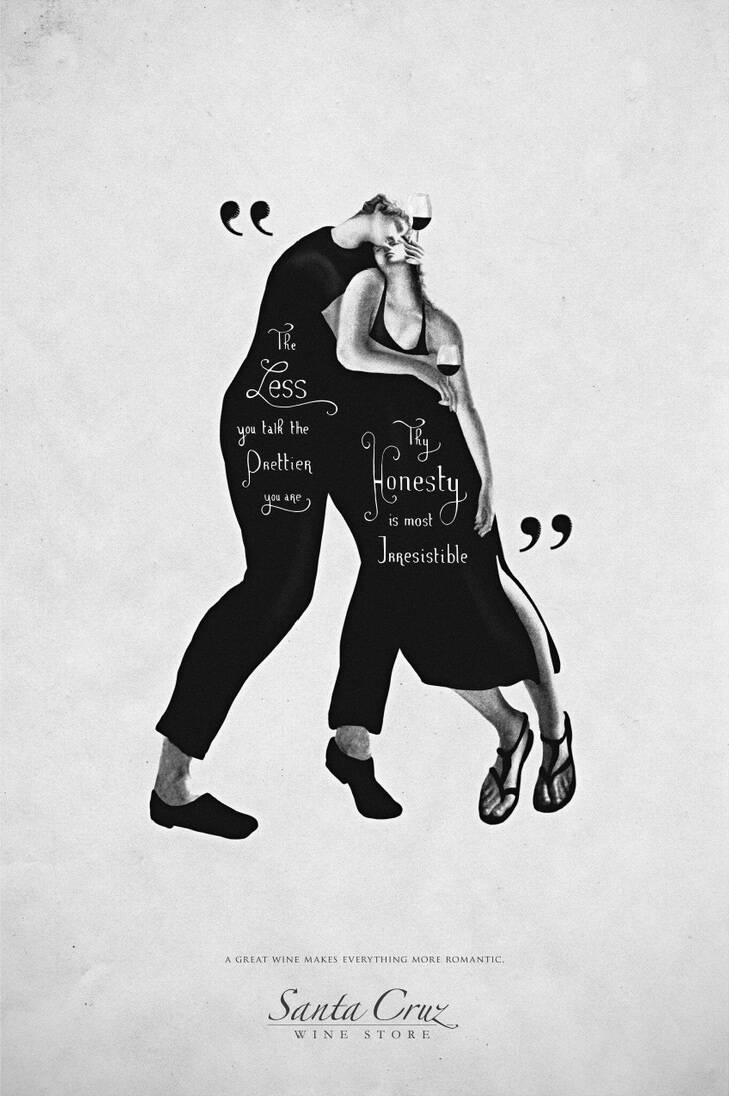 “
The
Less
you talk the
Prettier
you are
Thy
Honesty
is most
Irresistible
”
A GREAT WINE MAKES EVERYTHING MORE ROMANTIC.
Santa Cruz
WINE STORE